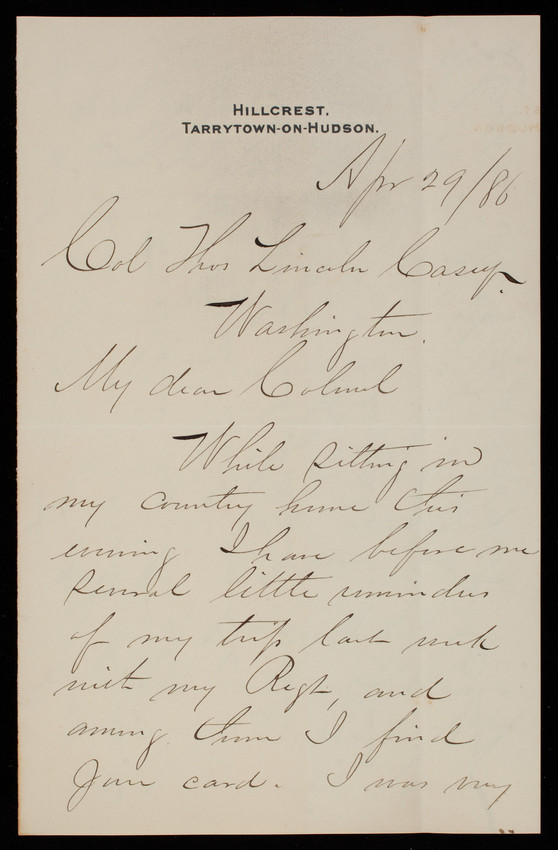 HILLCREST,
TARRYTOWN-ON-HUDSON.
Apr 29/86
Col Thos Lincoln Casey,
Washington.
My dear Colonel
While sitting in
my country home this
evening I have before me
several little reminders
of my trip last week
with my Regt, and
among them I find
your card. I was very